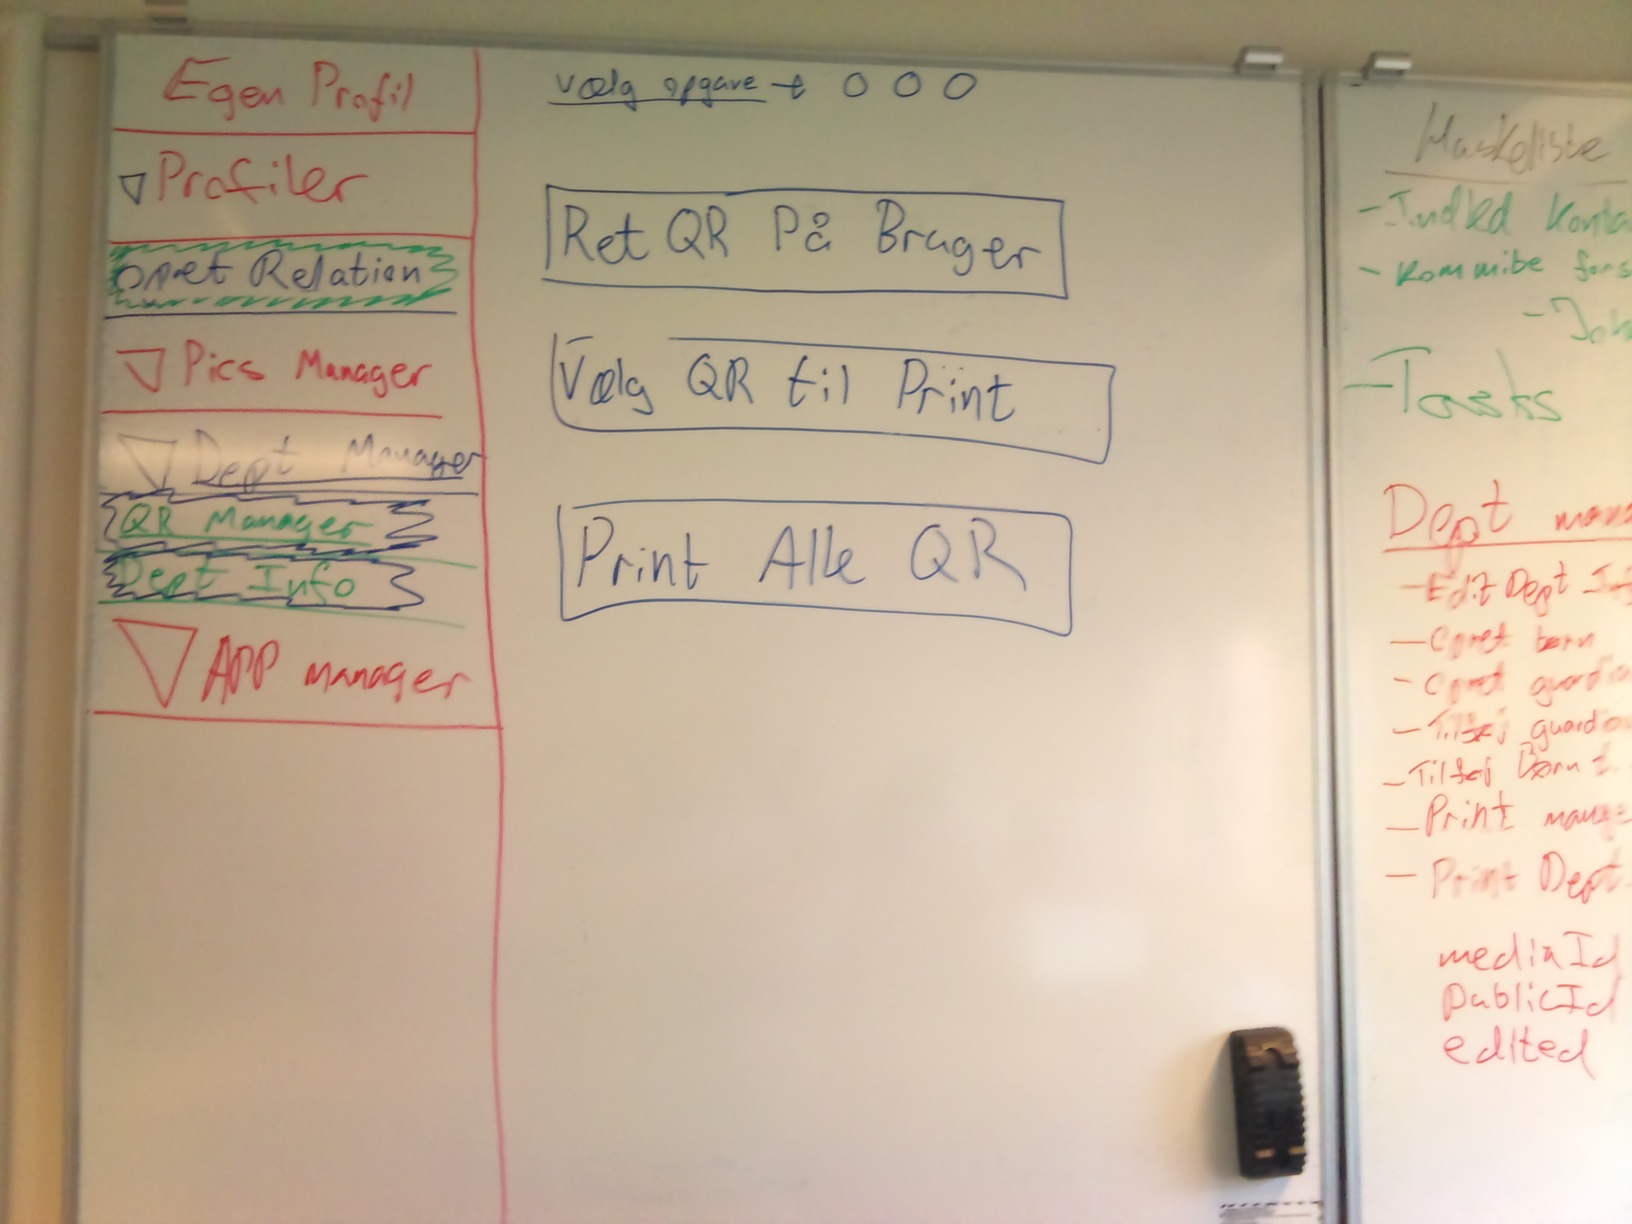 Egen Profil
Profiler
opret Relation
Pics Manager
Dept Manager
QR Manager
Dept Info
APP manager
Vælg opgave → O O O
Ret QR På Bruger
Vælg QR til Print
Print Alle QR
Huskeliste
- Kommite
- Tasks
Dept
- Edit Dept
- Opret børn
- Opret
- Tilføj
- Tilføj Børn t
- Print
- Print Dept
mediaId
publicId
edited